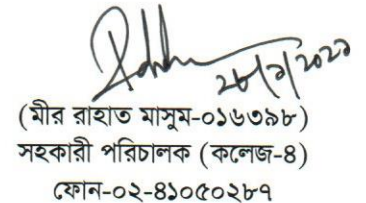 ২৮/১/২০২১
(মীর রাহাত মাসুম-০১৬৩৯৮)
সহকারী পরিচালক (কলেজ-৪)
ফোন-০২-৪১০৫০২৮৭